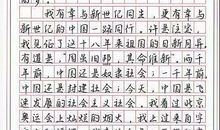 的梦。
我有幸与新世纪同生,更有幸与
新世纪的中国一路同行,许是注定,
我见证了这十八年来祖国的日新月异。
有道是“周虽旧邦,其命维新”,两千
年前,中国还是奴隶社会;一千年前
,中国还是封建社会;今天,中国是飞
速发展的社会主义社会。我看过北京
奥运会上灿烂的烟火,我也